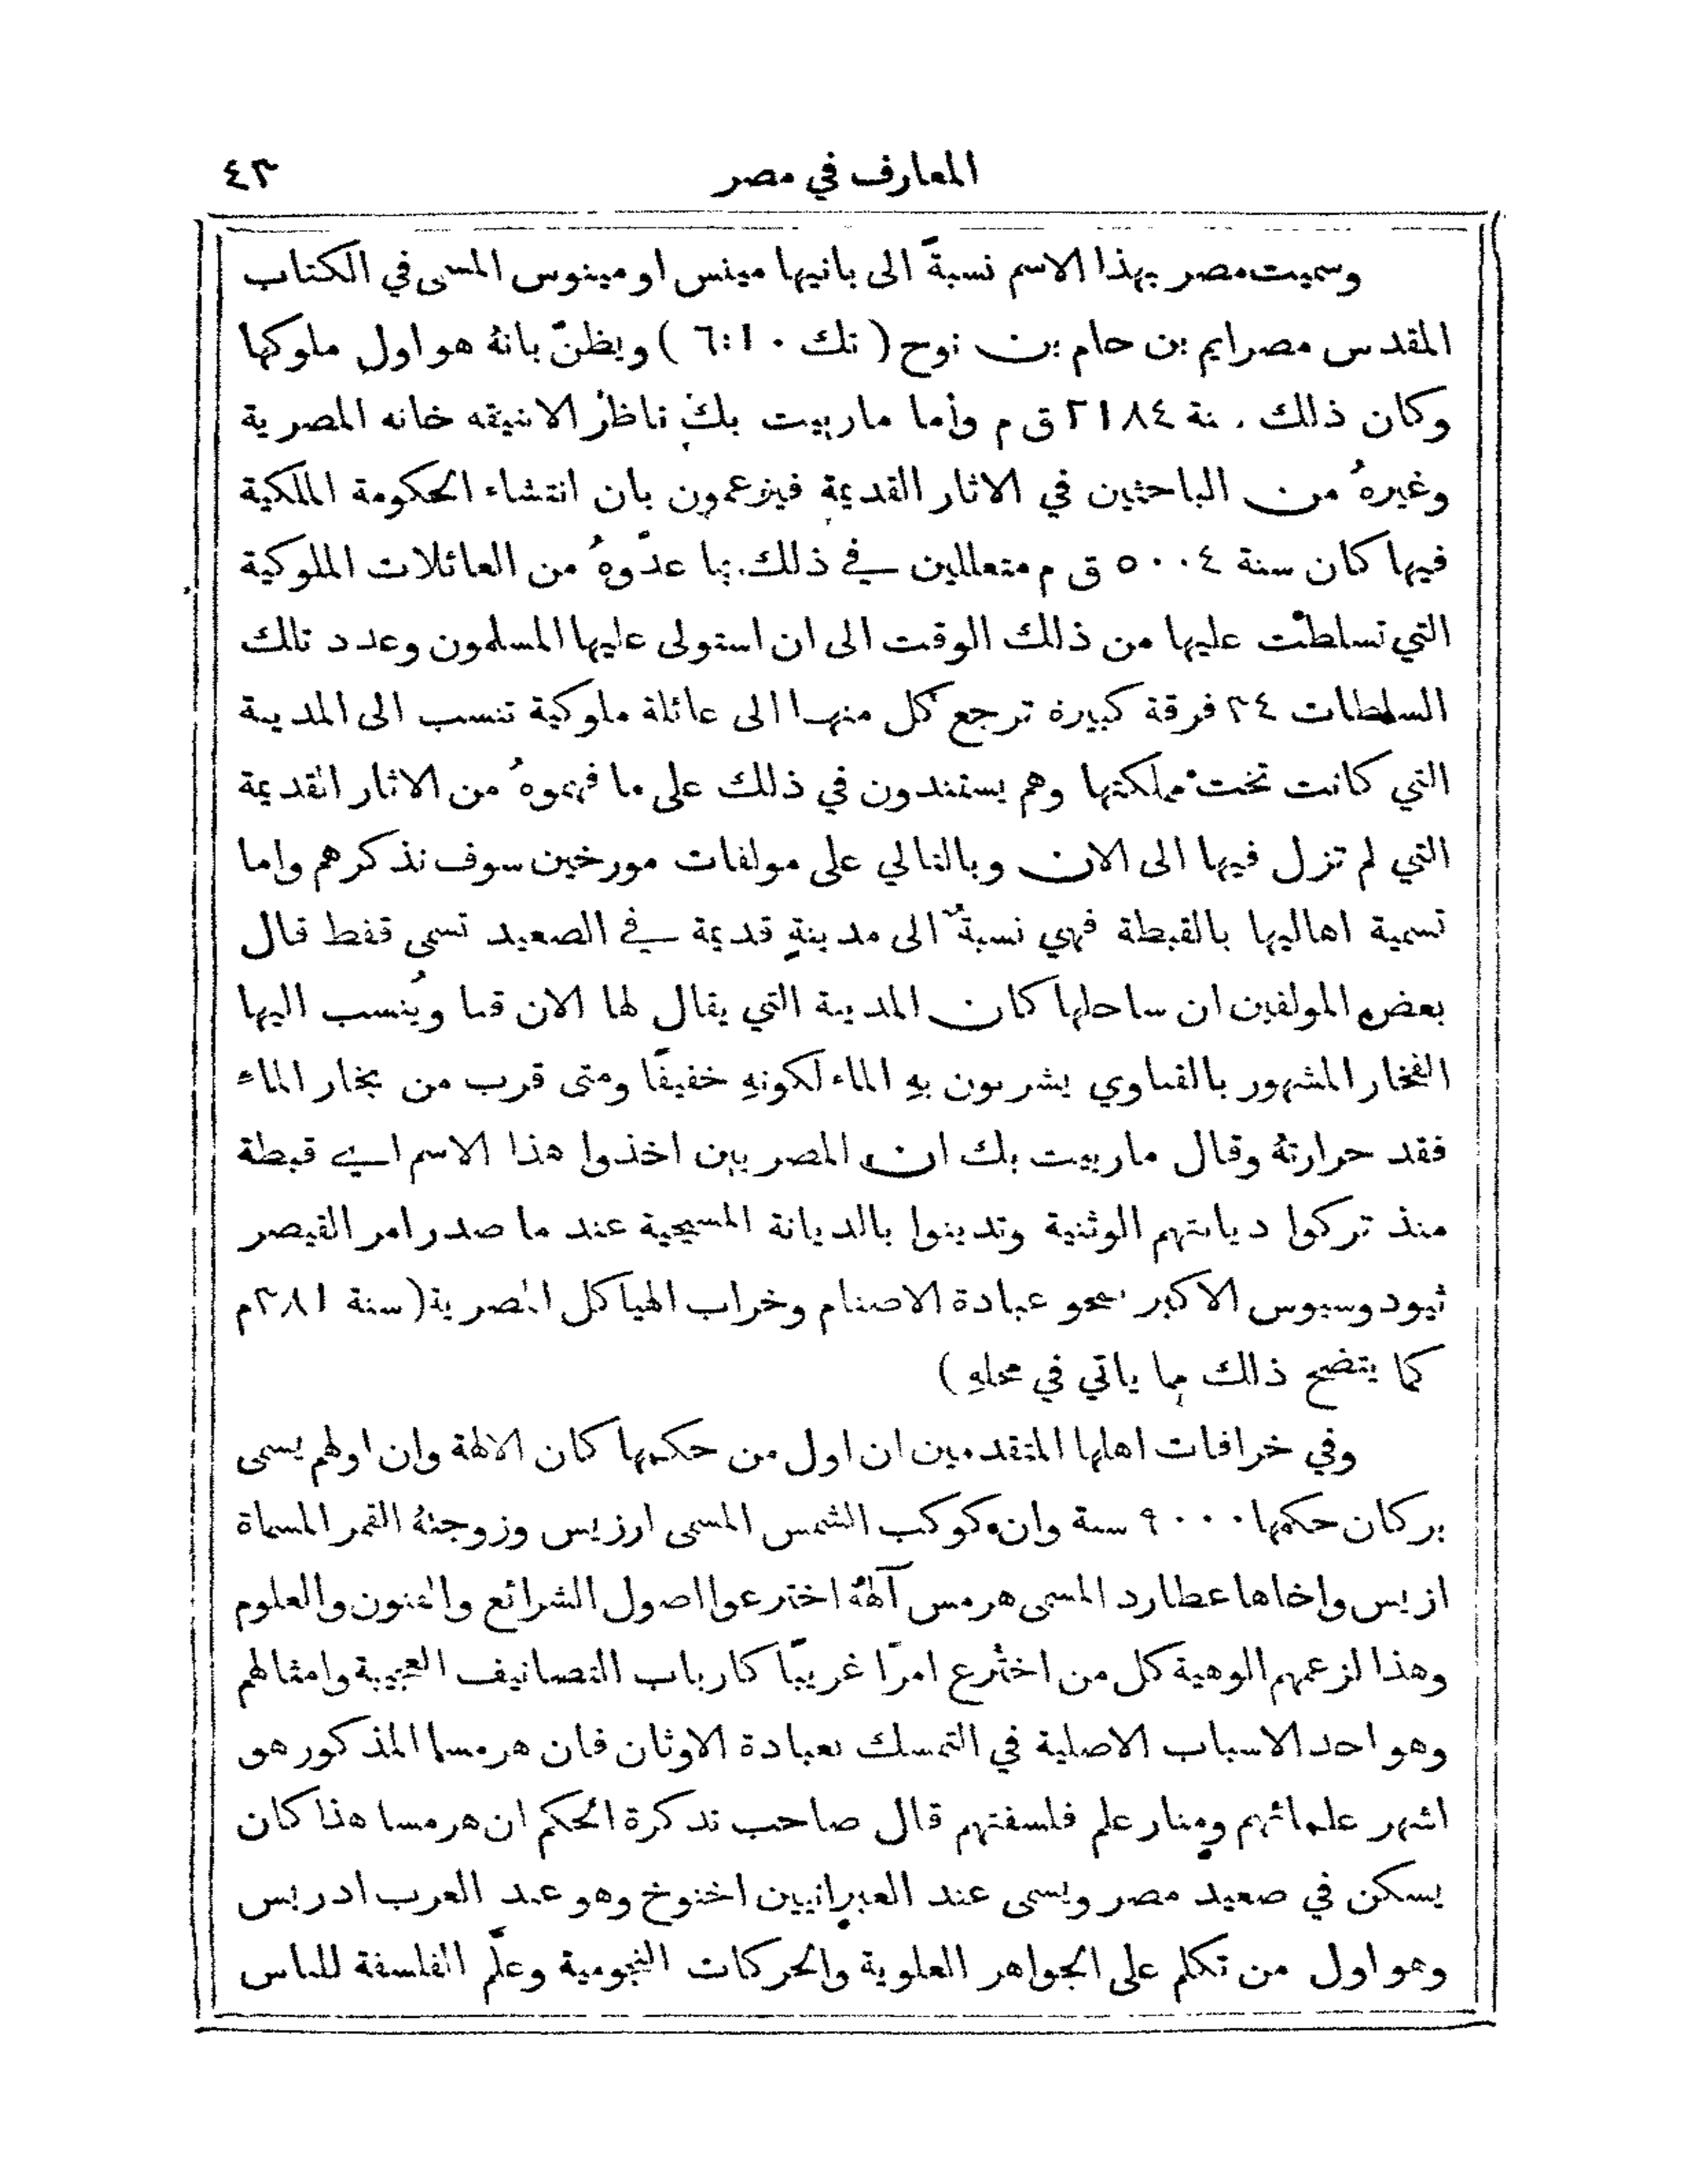 المعارف في مصر ٤٣
وسميت مصر بهذا الاسم نسبةً الى بانيها مينس او مينوس المسمى في الكتاب
المقدس مصرايم بن حام بن نوح ( تك ١٠:٦ ) ويظنّ بانهُ هو اول ملوكها
وكان ذلك سنة ٢١٨٤ ق م وأما مارييت بك ناظر الانتيقه خانه المصرية
وغيرهُ من الباحثين في الاثار القديمة فيزعمون بان انتشاء الحكومة الملكية
فيها كان سنة ٥٠٠٤ ق م متعللين في ذلك بما عدّوهُ من العائلات الملوكية
التي تسلطت عليها من ذلك الوقت الى ان استولى عليها المسلمون وعدد تلك
السلطات ٣٤ فرقة كبيرة ترجع كل منها الى عائلة ملوكية تنسب الى المدينة
التي كانت تخت مملكتها وهم يستندون في ذلك على ما فهموهُ من الاثار القديمة
التي لم تزل فيها الى الان وبالتالي على مولفات مورخين سوف نذكرهم واما
تسمية اهاليها بالقبطة فهي نسبةً الى مدينةٍ قديمة في الصعيد تسمى قفط قال
بعض المولفين ان ساحلها كان المدينة التي يقال لها الان قنا ويُنسب اليها
الفخار المشهور بالقناوي يشربون بهِ الماء لكونهِ خفيفًا ومتى قرب من بخار الماء
فقد حرارتهُ وقال مارييت بك ان المصريين اخذوا هذا الاسم اي قبطة
منذ تركوا ديانتهم الوثنية وتدينوا بالديانة المسيحية عند ما صدر امر القيصر
ثيودوسيوس الاكبر بمحو عبادة الاصنام وخراب الهياكل المصرية ( سنة ٣٨١ م
كما يتضح ذلك مما ياتي في محلهِ )
وفي خرافات اهلها المتقدمين ان اول من حكمها كان الالهة وان اولهم يسمى
بركان حكمها ٩٠٠٠ سنة وان كوكب الشمس المسمى ارزيس وزوجتهُ القمر المسماة
ازيس واخاها عطارد المسمى هرمس آلهةٌ اخترعوا اصول الشرائع والفنون والعلوم
وهذا لزعمهم الوهية كل من اخترع امرًا غريبًا كارباب التصانيف العجيبة وامثالهم
وهو احد الاسباب الاصلية في التمسك بعبادة الاوثان فان هرمسا المذكور هو
اشهر علمائهم ومنار علم فلسفتهم قال صاحب تذكرة الحكم ان هرمسا هذا كان
يسكن في صعيد مصر ويسمى عند العبرانيين اخنوخ وهو عند العرب ادريس
وهو اول من تكلم على الجواهر العلوية والحركات النجومية وعلّم الفلسفة للناس